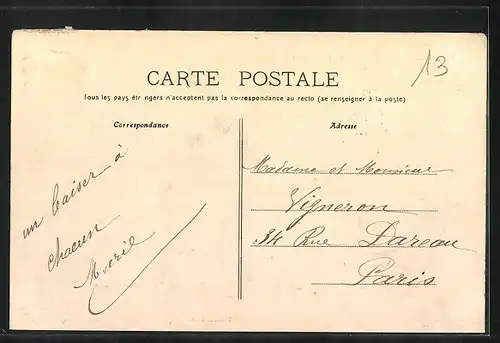 13
CARTE POSTALE
Tous les pays étrangers n'acceptent pas la correspondance au recto (se renseigner à la poste)
Correspondance
Adresse
un baiser à
chacun
Madame et Monsieur
Vigneron
34 Rue Dareau
Paris